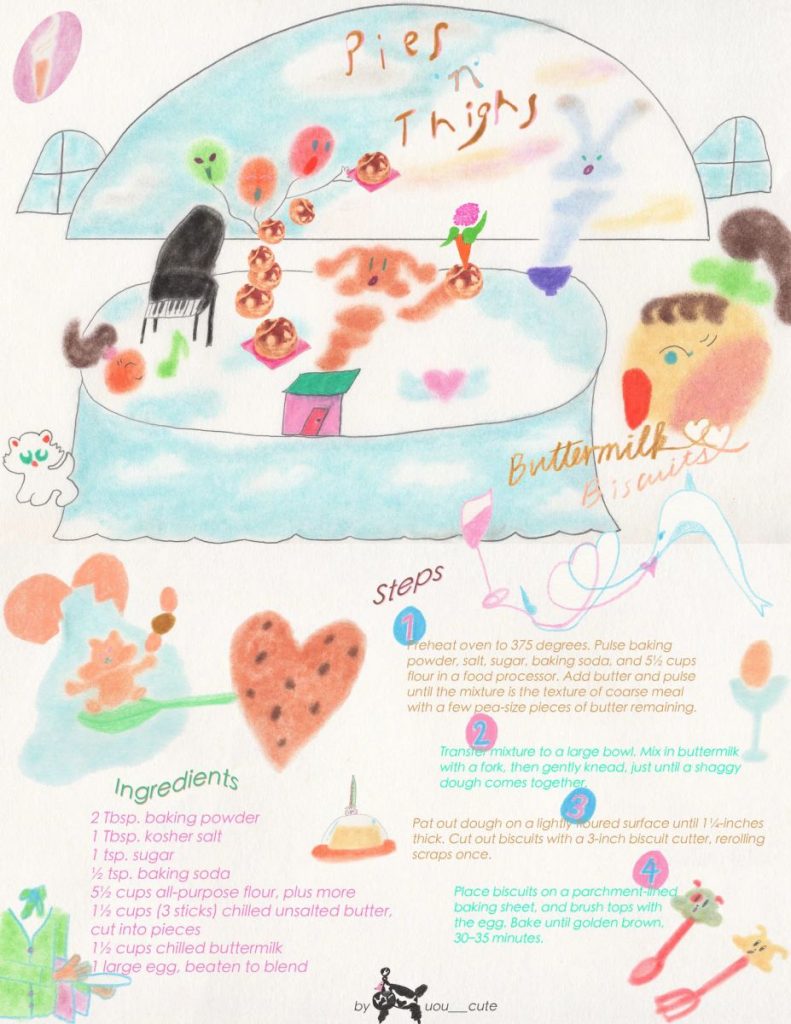 Pies
'n'
Thighs
Buttermilk
Biscuits
Steps
1
Preheat oven to 375 degrees. Pulse baking
powder, salt, sugar, baking soda, and 5½ cups
flour in a food processor. Add butter and pulse
until the mixture is the texture of coarse meal
with a few pea-size pieces of butter remaining.
2
Transfer mixture to a large bowl. Mix in buttermilk
with a fork, then gently knead, just until a shaggy
dough comes together.
3
Pat out dough on a lightly floured surface until 1¼-inches
thick. Cut out biscuits with a 3-inch biscuit cutter, rerolling
scraps once.
4
Place biscuits on a parchment-lined
baking sheet, and brush tops with
the egg. Bake until golden brown,
30–35 minutes.
Ingredients
2 Tbsp. baking powder
1 Tbsp. kosher salt
1 tsp. sugar
½ tsp. baking soda
5½ cups all-purpose flour, plus more
1½ cups (3 sticks) chilled unsalted butter,
cut into pieces
1½ cups chilled buttermilk
1 large egg, beaten to blend
by uou__cute